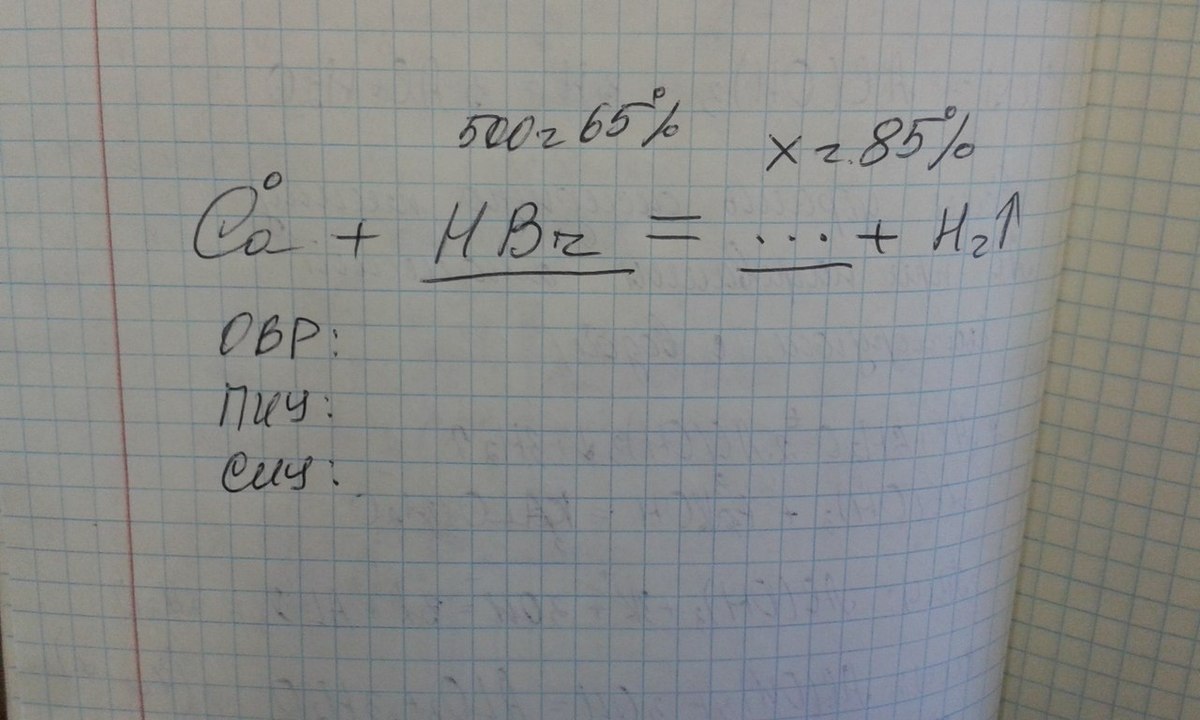 500г 65% x г. 85%
Ca⁰ + HBr = ... + H₂↑
ОВР:
ПИУ:
СИУ: